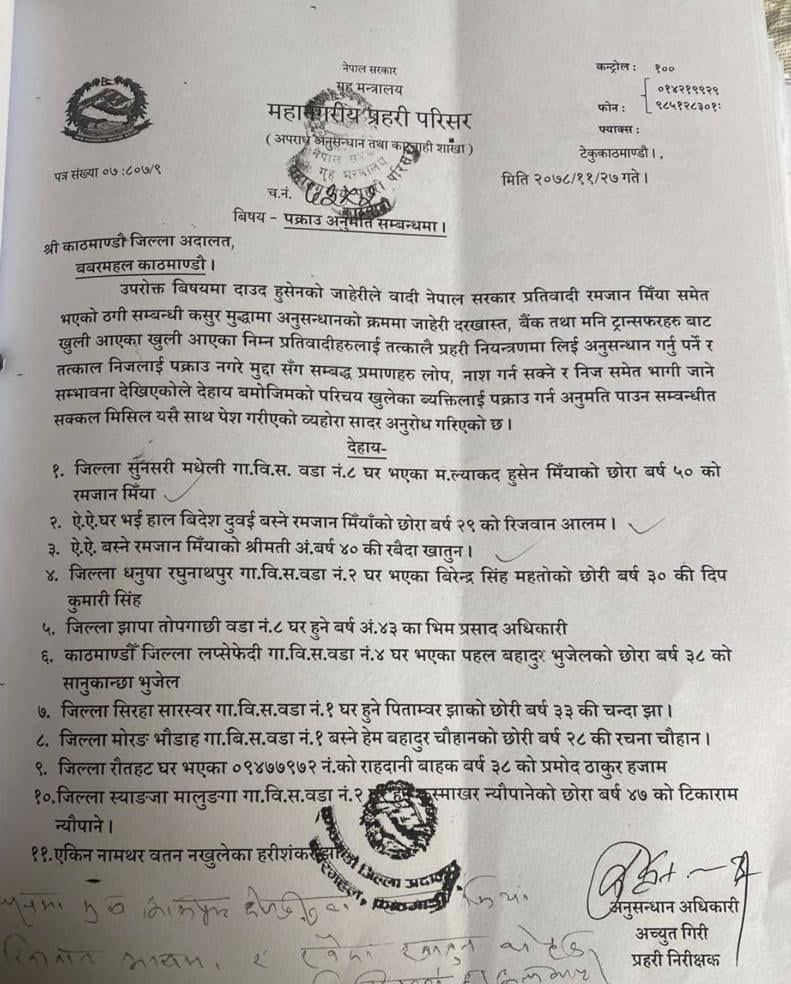 नेपाल सरकार
गृह मन्त्रालय
महानगरीय प्रहरी परिसर
( अपराध अनुसन्धान तथा कारबाही शाखा )
कन्ट्रोल : १००
०१४२१९९२९
फोन : ९८५१२८३०१
फ्याक्स :
टेकुकाठमाण्डौ ।,
पत्र संख्या ०७ :८०७/९
मिति २०७८/११/२७ गते ।
च.नं.
बिषय - पक्राउ अनुमति सम्बन्धमा ।
श्री काठमाण्डौ जिल्ला अदालत,
बबरमहल काठमाण्डौ ।
उपरोक्त बिषयमा दाउद हुसेनको जाहेरीले वादी नेपाल सरकार प्रतिवादी रमजान मिँया समेत
भएको ठगी सम्बन्धी कसुर मुद्धामा अनुसन्धानको क्रममा जाहेरी दरखास्त, बैंक तथा मनि ट्रान्सफरहरु बाट
खुली आएका खुली आएका निम्न प्रतिवादीहरुलाई तत्कालै प्रहरी नियन्त्रणमा लिई अनुसन्धान गर्नु पर्ने र
तत्काल निजलाई पक्राउ नगरे मुद्दा सँग सम्बद्ध प्रमाणहरु लोप, नाश गर्न सक्ने र निज समेत भागी जाने
सम्भावना देखिएकोले देहाय बमोजिमको परिचय खुलेका ब्यक्तिलाई पक्राउ गर्न अनुमति पाउन सम्वन्धीत
सक्कल मिसिल यसै साथ पेश गरीएको व्यहोरा सादर अनुरोध गरिएको छ ।
देहाय-
१. जिल्ला सुनसरी मधेली गा.वि.स. वडा नं.८ घर भएका म.ल्याकद हुसेन मिँयाको छोरा बर्ष ५० को
रमजान मिँया
२. ऐ.ऐ.घर भई हाल बिदेश दुवई बस्ने रमजान मिँयाँको छोरा बर्ष २९ को रिजवान आलम ।
३. ऐ.ऐ. बस्ने रमजान मिँयाको श्रीमती अं.बर्ष ४० की रबैदा खातुन ।
४. जिल्ला धनुषा रघुनाथपुर गा.वि.स.वडा नं.२ घर भएका बिरेन्द्र सिंह महतोको छोरी बर्ष ३० की दिप
कुमारी सिंह
५. जिल्ला झापा तोपगाछी वडा नं.८ घर हुने बर्ष अं.४३ का भिम प्रसाद अधिकारी
६. काठमाण्डौँ जिल्ला लप्सेफेदी गा.वि.स.वडा नं.४ घर भएका पहल बहादुर भुजेलको छोरा बर्ष ३८ को
सानुकान्छा भुजेल
७. जिल्ला सिरहा सारस्वर गा.वि.स.वडा नं.१ घर हुने पिताम्वर झाको छोरी बर्ष ३३ की चन्दा झा ।
८. जिल्ला मोरङ भौडाह गा.बि.स.वडा नं.१ बस्ने हेम बहादुर चौहानको छोरी बर्ष २८ की रचना चौहान ।
९. जिल्ला रौतहट घर भएका ०९४७७९७२ नं.को राहदानी बाहक बर्ष ३८ को प्रमोद ठाकुर हजाम
१०.जिल्ला स्याङजा मालुङगा गा.वि.स.वडा नं.२ न्यौपानेको छोरा बर्ष ४७ को टिकाराम
न्यौपाने ।
११.एकिन नामथर वतन नखुलेका हरीशंकर
अनुसन्धान अधिकारी
अच्युत गिरी
प्रहरी निरीक्षक